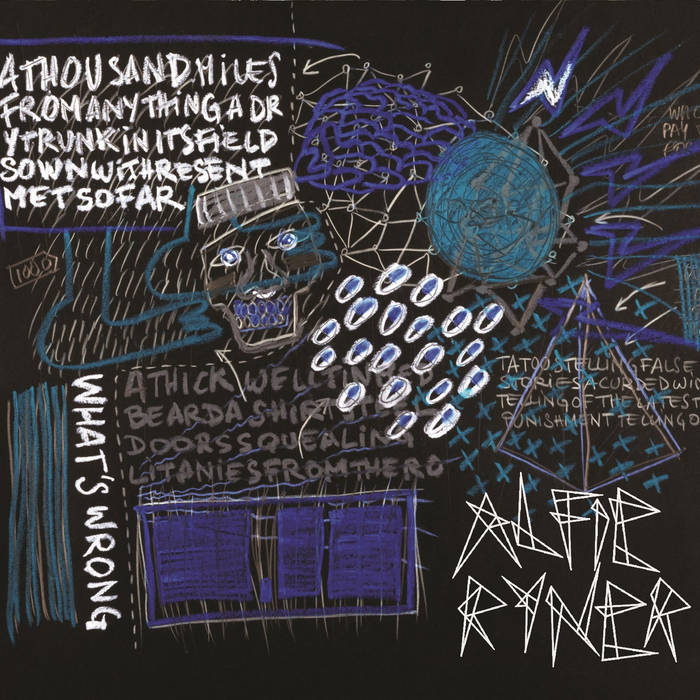 ATHOUSANDMILES
FROMANYTHINGADR
YTRUNKINITSFIELD
SOWNWITHRESENT
METSOFAR
PAY
1000
TATOOSTELLINGFALSE
STORIESACURDEDWI
TELLINGOFTHELATEST
PUNISHMENTTELLINGO
ATHICKWELLTINGED
BEARDASHIRT
DOORSSQUEALING
LITANIESFROMTHERO
WHAT'S WRONG
ALFIE
RYNER